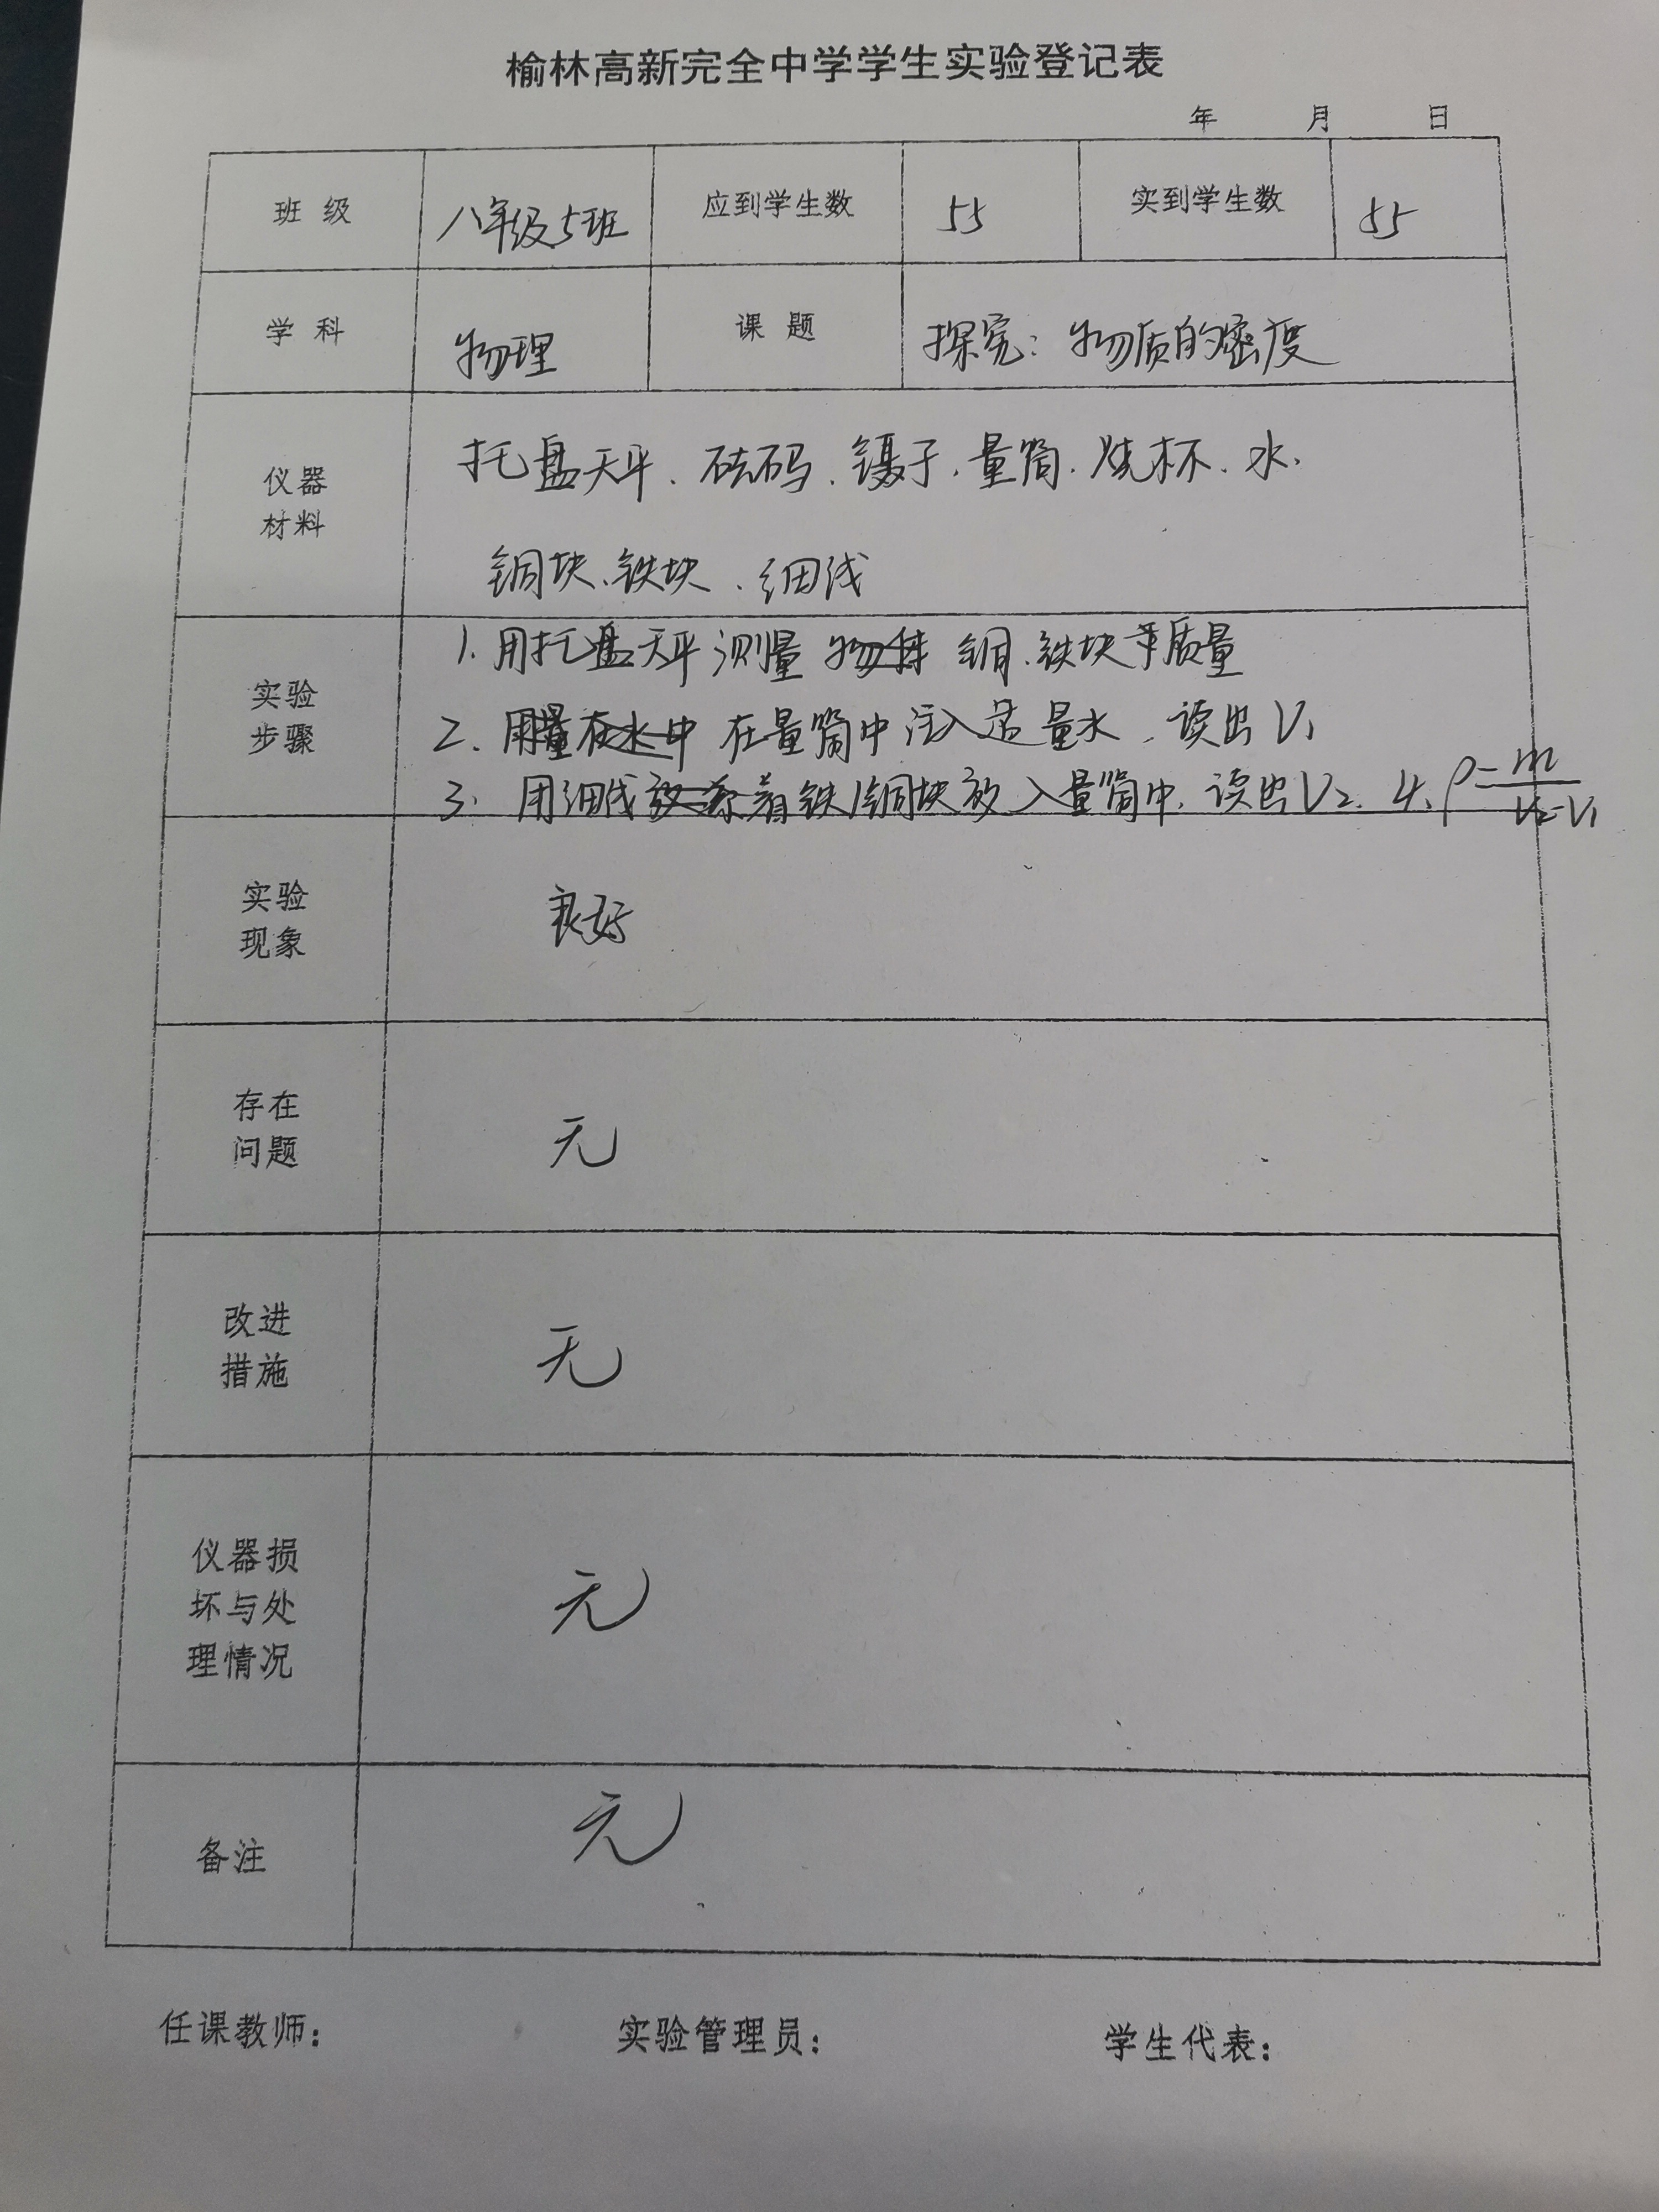 榆林高新完全中学学生实验登记表
年 月 日
班 级 八年级5班 应到学生数 55 实到学生数 55
学 科 物理 课 题 探究：物质的密度
仪器
材料
托盘天平、砝码、镊子、量筒、烧杯、水、
铜块、铁块、细线
实验
步骤
1. 用托盘天平测量 铜、铁块质量
2. 在量筒中注入适量水，读出V₁
3. 用细线系着铁/铜块放入量筒中，读出V₂. 4. ρ=m/(V₂-V₁)
实验
现象
良好
存在
问题
无
改进
措施
无
仪器损
坏与处
理情况
无
备注
无
任课教师： 实验管理员： 学生代表：